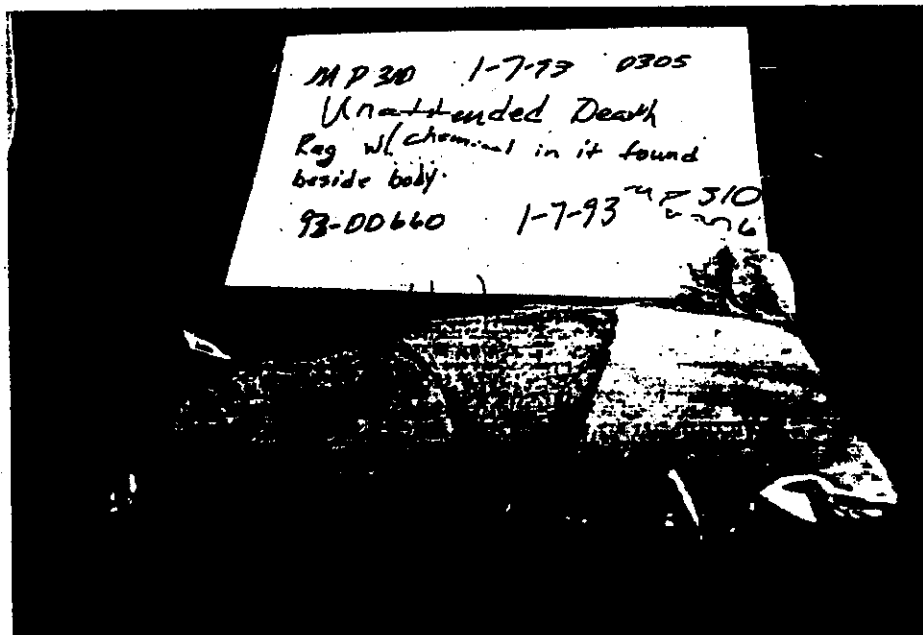 MP 310 1-7-93 0305
Unattended Death
Rag w/ chemical in it found
beside body.
93-00660 1-7-93 MP 310